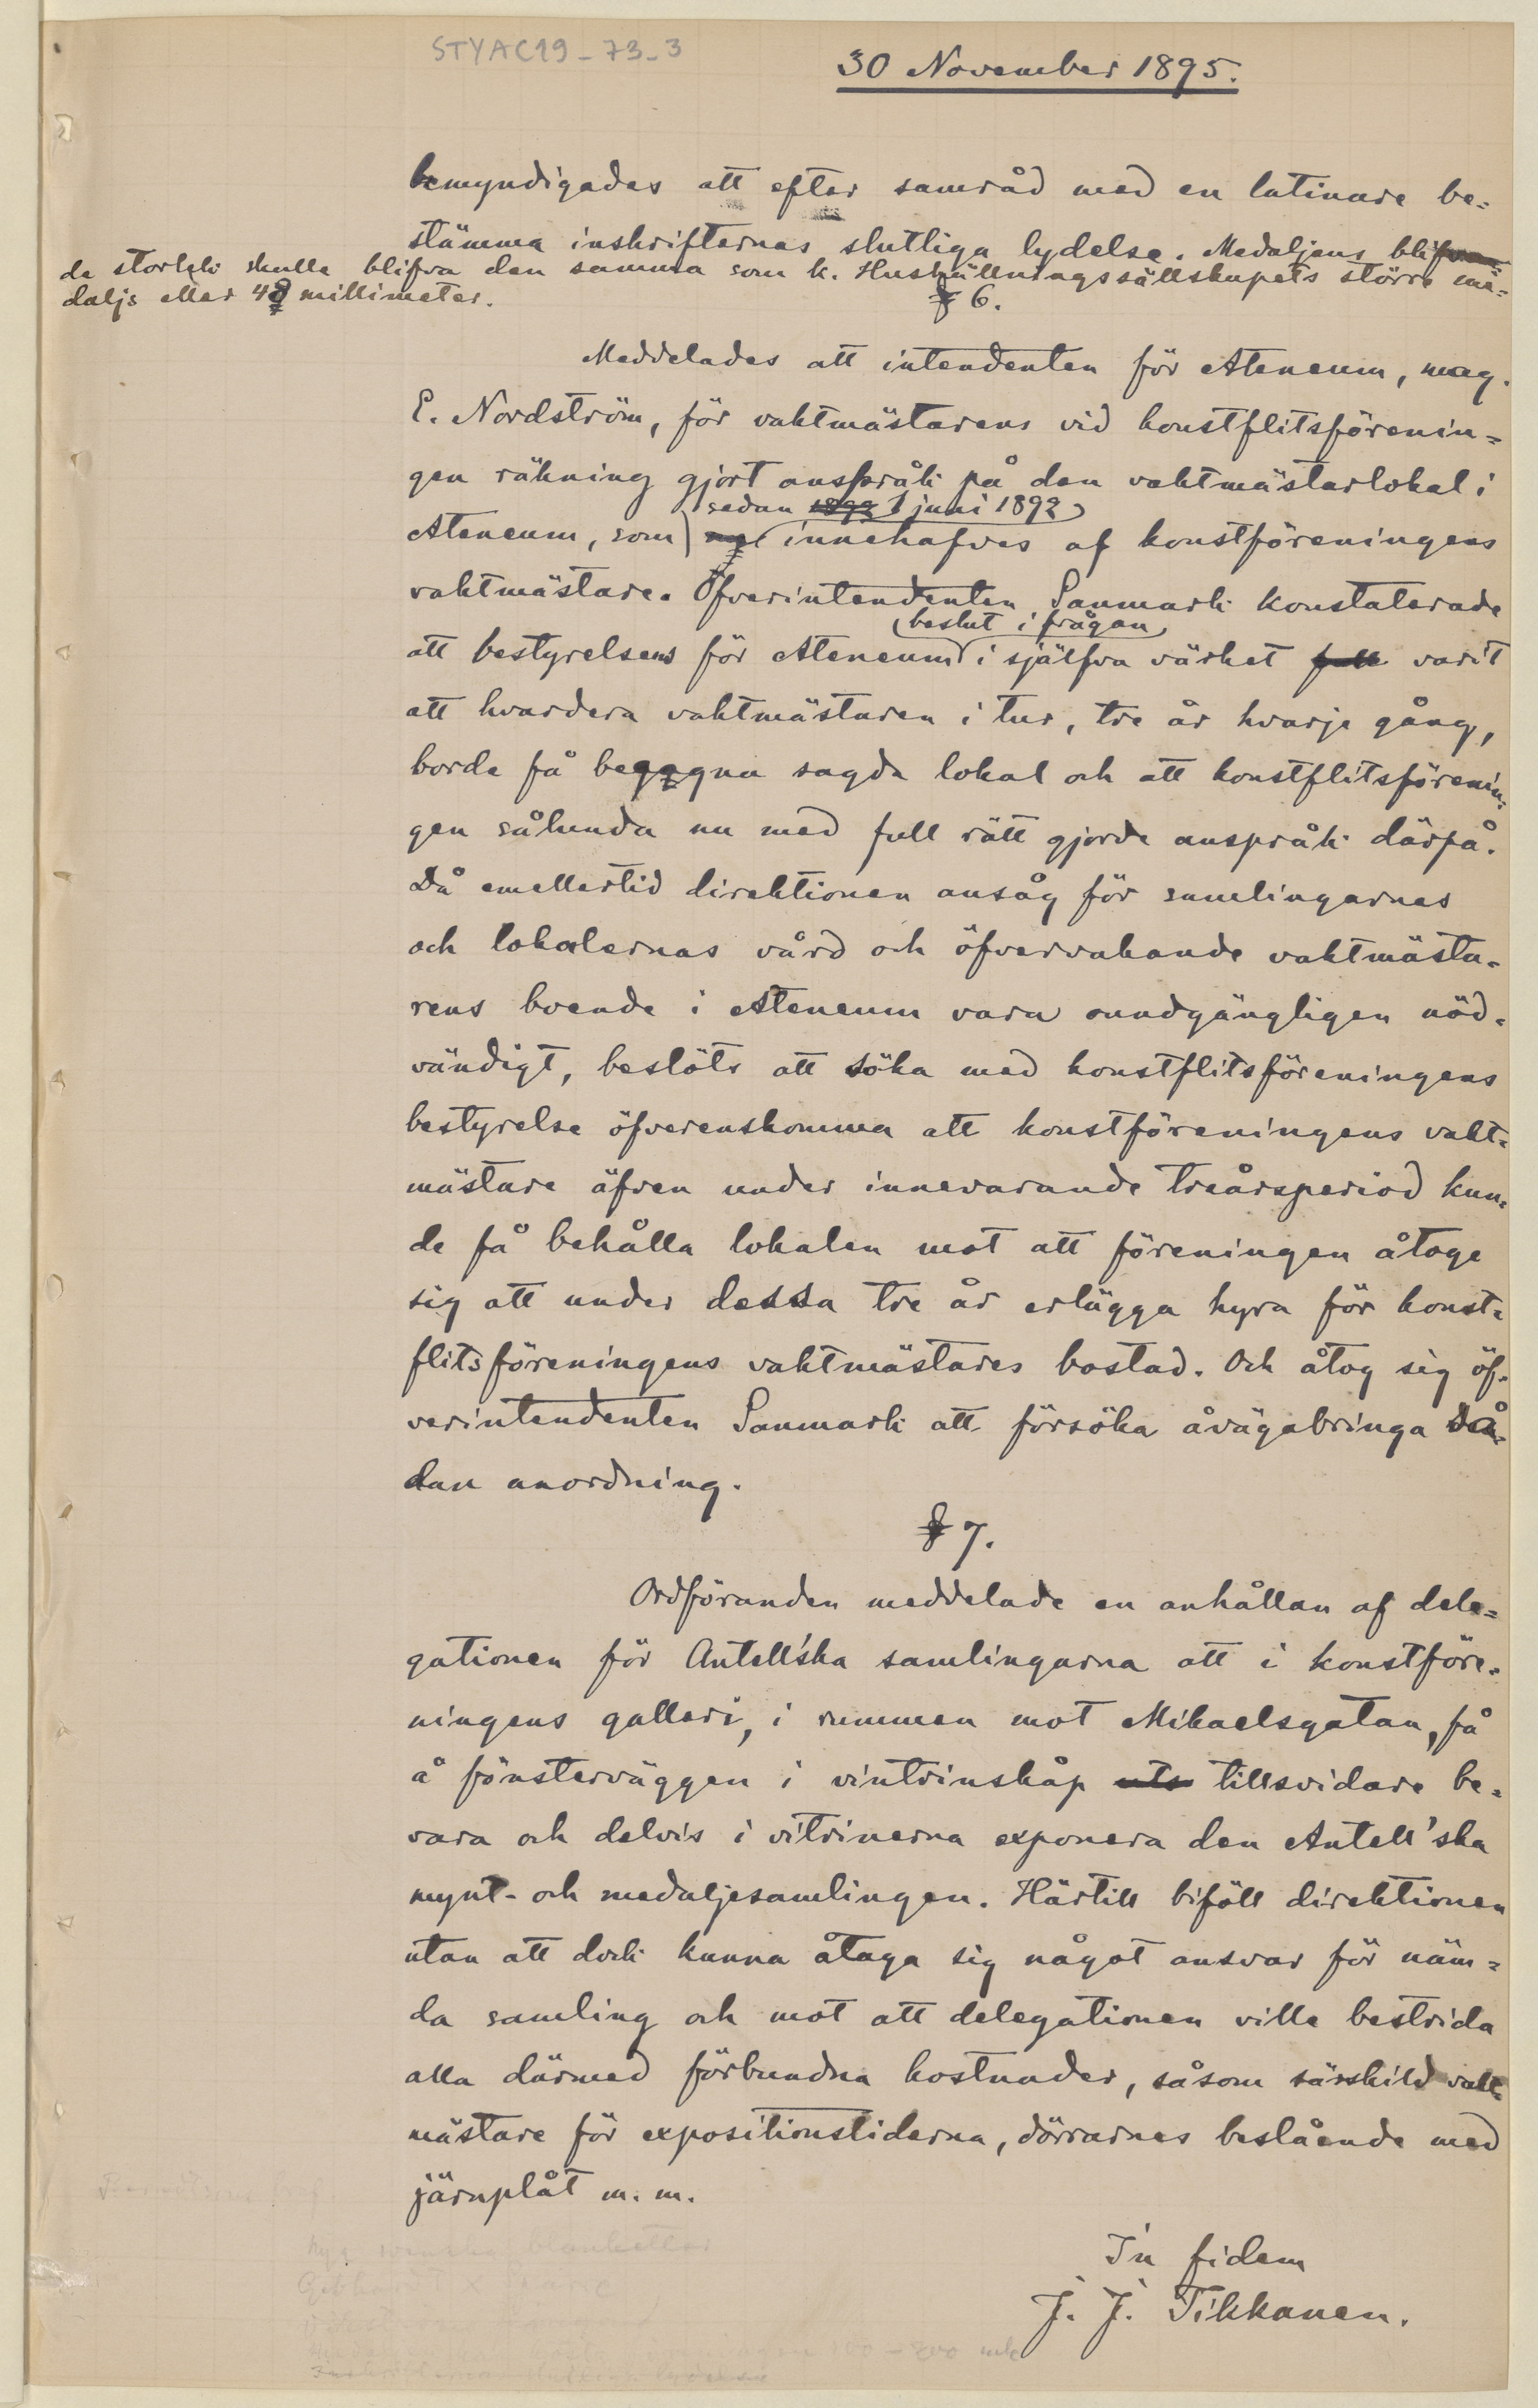 STYAC19-73-3
30 November 1895.
bemyndigades att efter samråd med en latinare be=
stämma inskrifternas slutliga lydelse. Medaljens blifvan=
de storlek skulle blifva den samma som k. Hushållningssällskapets större me=
dalje eller 48 millimeter.
§ 6.
Meddelades att intendenten för Ateneum, mag.
E. Nordström, för vaktmästarens vid konstflitsförenin=
gen räkning gjort anspråk på den vaktmästarlokal i
sedan 1892 1 juni 1892
Ateneum, som nu innehafves af konstföreningens
vaktmästare. Öfverintendenten Sanmark konstaterade
beslut i frågan
att bestyrelsens för Ateneum i själfva värket varit
att hvardera vaktmästaren i tur, tre år hvarje gång,
borde få begagna sagda lokal och att konstflitsförenin=
gen sålunda nu med full rätt gjorde anspråk därpå.
Då emellertid direktionen ansåg för samlingarnes
och lokalernas vård och öfvervakande vaktmästa=
rens boende i Ateneum vara oundgängligen nöd=
vändigt, beslöts att söka med konstflitsföreningens
bestyrelse öfverenskomma att konstföreningens vakt=
mästare äfven under innevarande treårsperiod kun=
de få behålla lokalen mot att föreningen åtoge
sig att under dessa tre år erlägga hyra för konst=
flitsföreningens vaktmästares bostad. Och åtog sig öf=
verintendenten Sanmark att försöka åvägabringa så=
dan anordning.
§ 7.
Ordföranden meddelade en anhållan af dele=
gationen för Antell'ska samlingarna att i konstföre=
ningens galleri, i rummen mot Mikaelsgatan, få
å fönsterväggen i vintrinskåp uts tillsvidare be=
vara och delvis i vitrinerna exponera den Antell'ska
mynt- och medaljesamlingen. Härtill biföll direktionen
utan att dock kunna åtaga sig något ansvar för näm=
da samling och mot att delegationen ville bestrida
alla därmed förbundna kostnader, såsom särskild vakt=
mästare för expositionstiderna, dörrarnes beslående med
järnplåt m. m.
In fidem
J. J. Tikkanen.
nya svenska blanketter